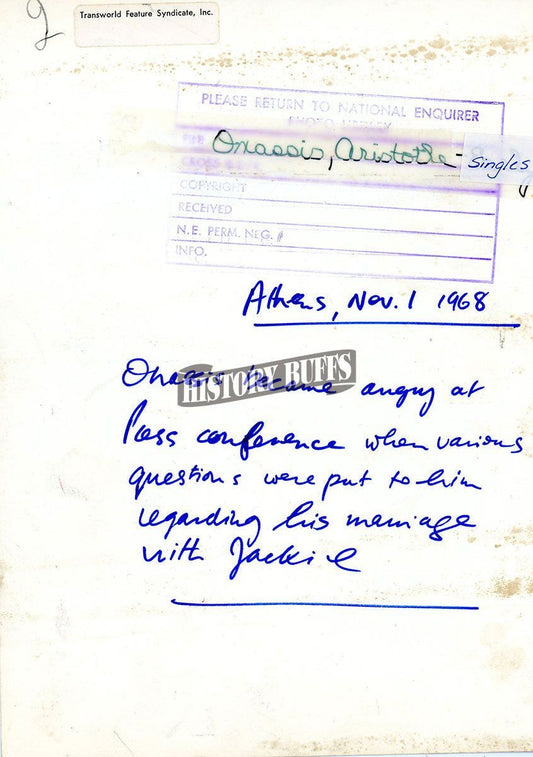 9
Transworld Feature Syndicate, Inc.
PLEASE RETURN TO NATIONAL ENQUIRER
PHOTO LIBRARY
Onassis, Aristotle - Singles
CROSS
COPYRIGHT
RECEIVED
N.E. PERM. NEG. #
INFO.
Athens, Nov. 1 1968
Onassis became angry at
HISTORY BUFFS
Press conference when various
questions were put to him
regarding his marriage
with Jackie